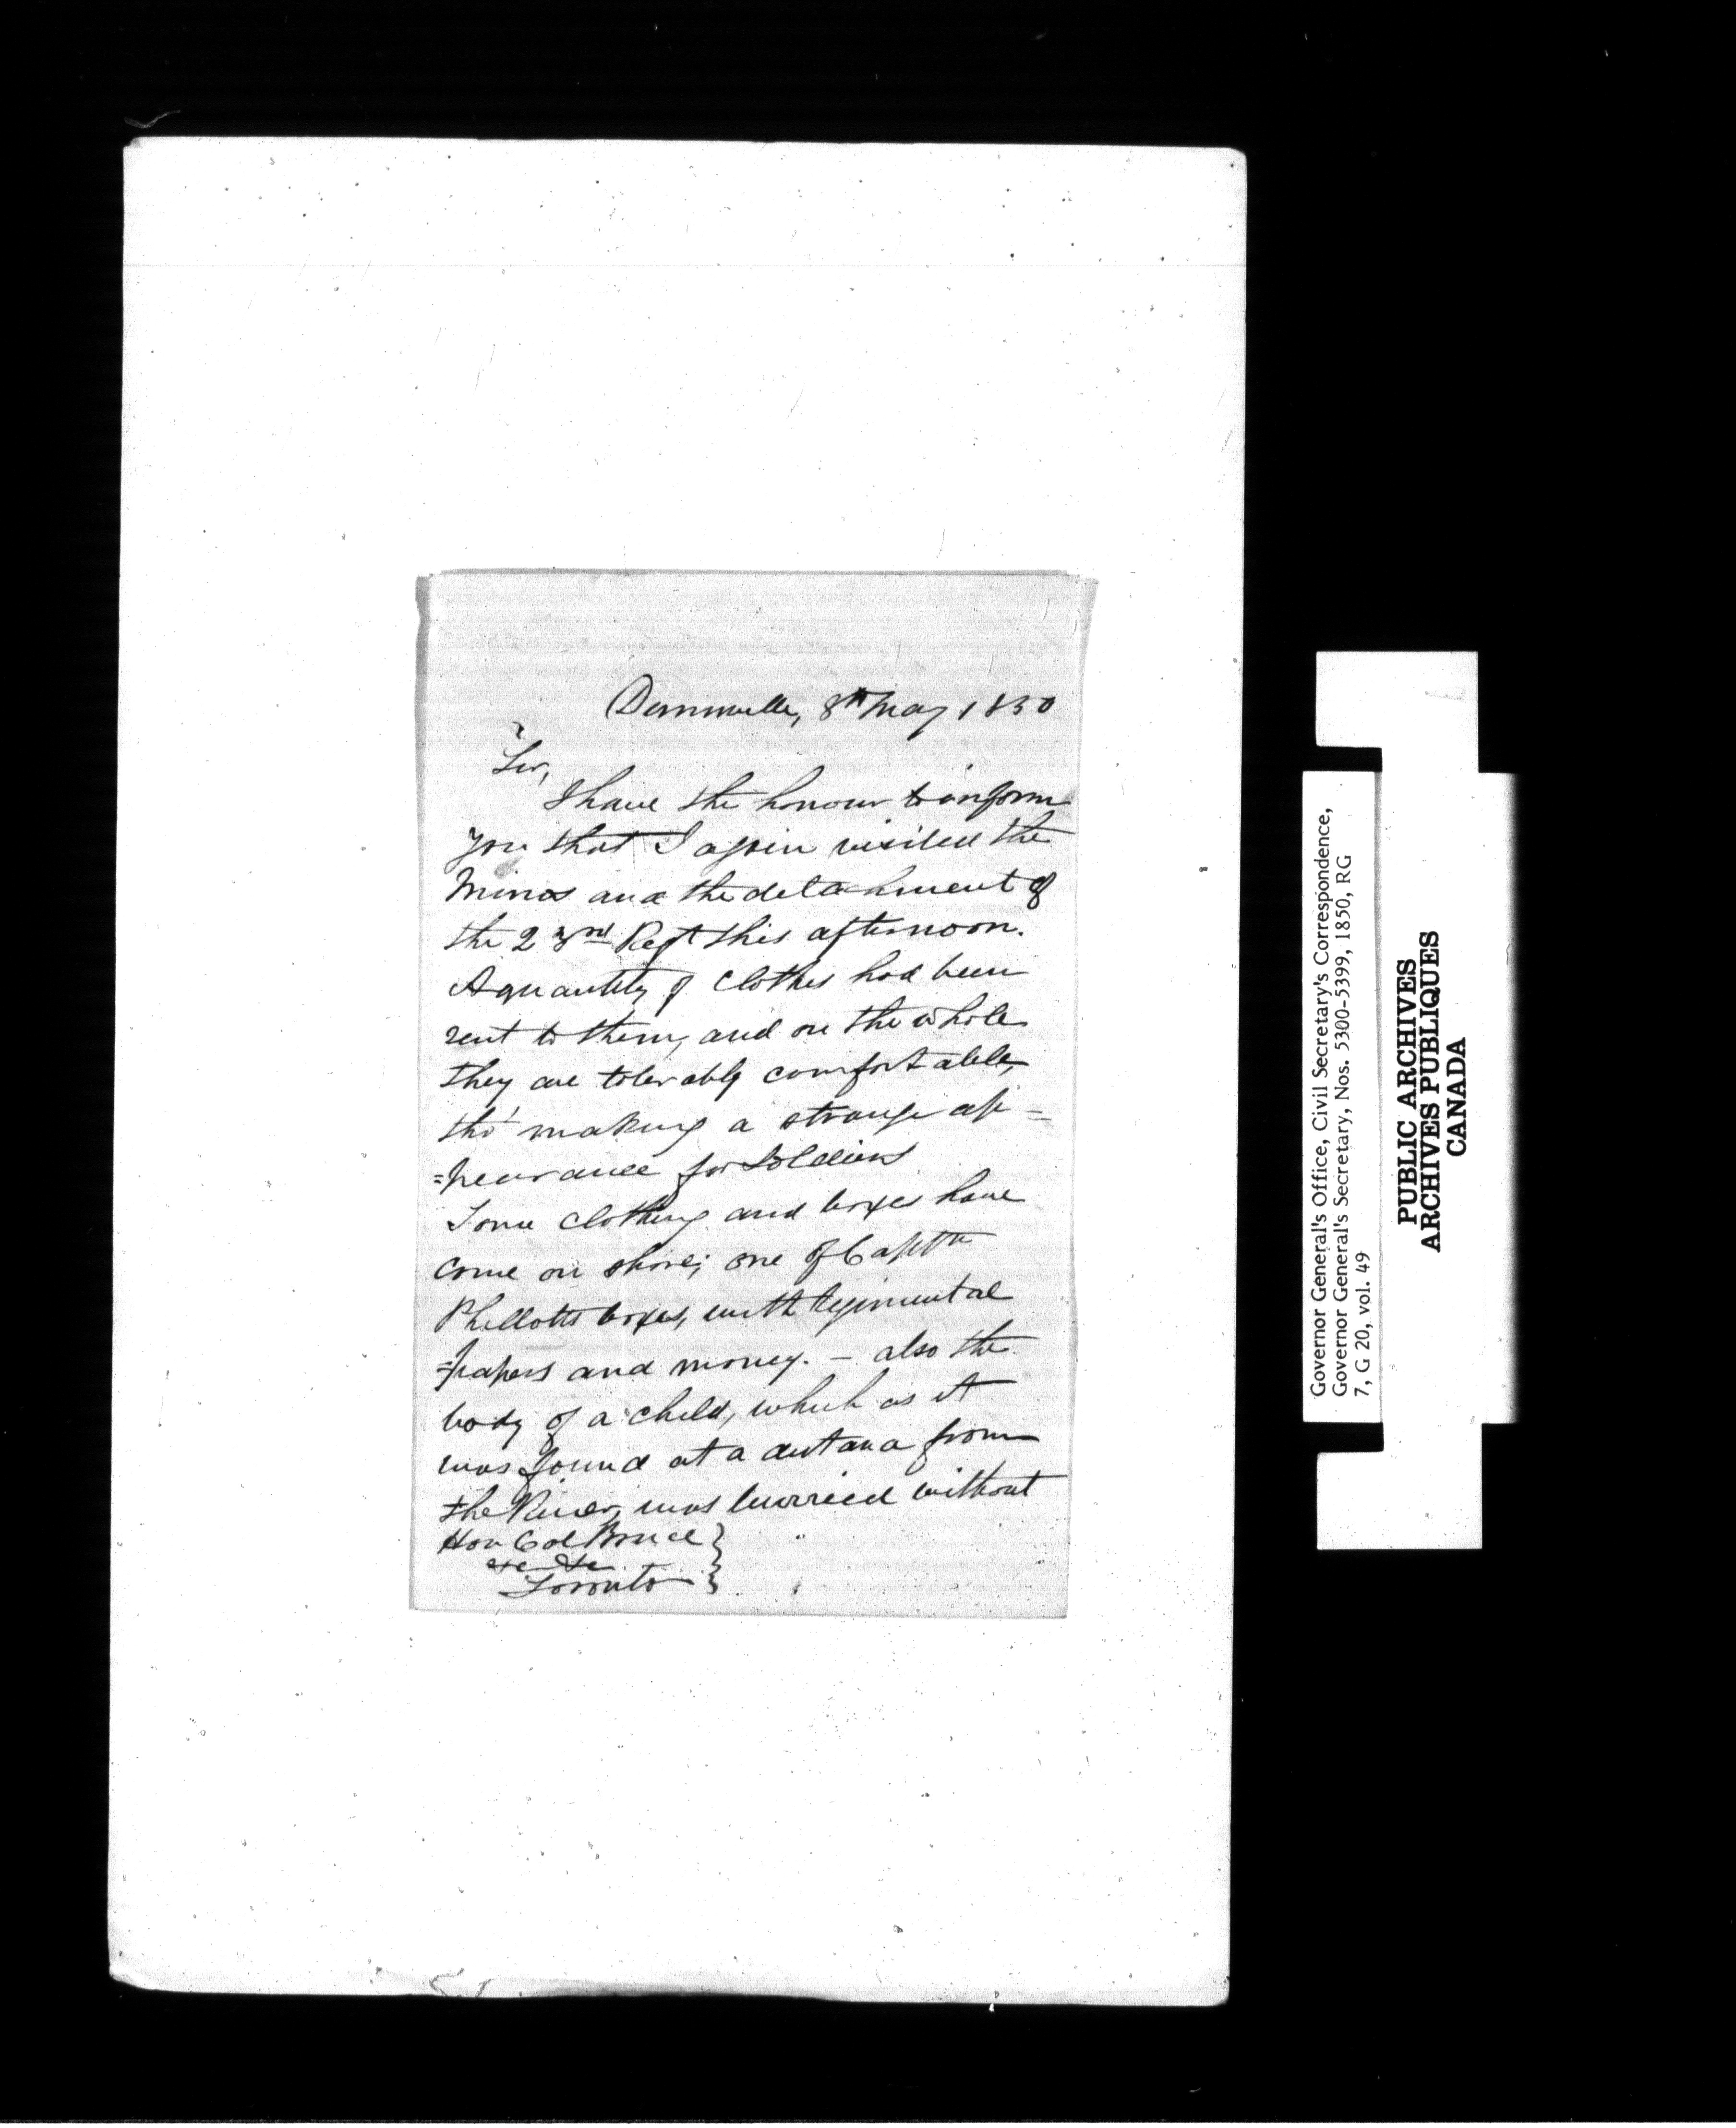 Dunnville, 8th May 1850
Sir,
I have the honour to inform
you that I again visited the
Minos and the detachment of
the 23rd Regt this afternoon.
A quantity of clothes had been
sent to them, and on the whole
they are tolerably comfortable,
tho' making a strange ap=
=pearance for soldiers
Some clothing and boxes have
come on shore; one of Captn
Phillotts boxes, with regimental
papers and money. – also the
body of a child, which as it
was found at a distance from
the River, was burried without
Hon Col Bruce
&c &c
Toronto
Governor General's Office, Civil Secretary's Correspondence,
Governor General's Secretary, Nos. 5300-5399, 1850, RG
7, G 20, vol. 49
PUBLIC ARCHIVES
ARCHIVES PUBLIQUES
CANADA